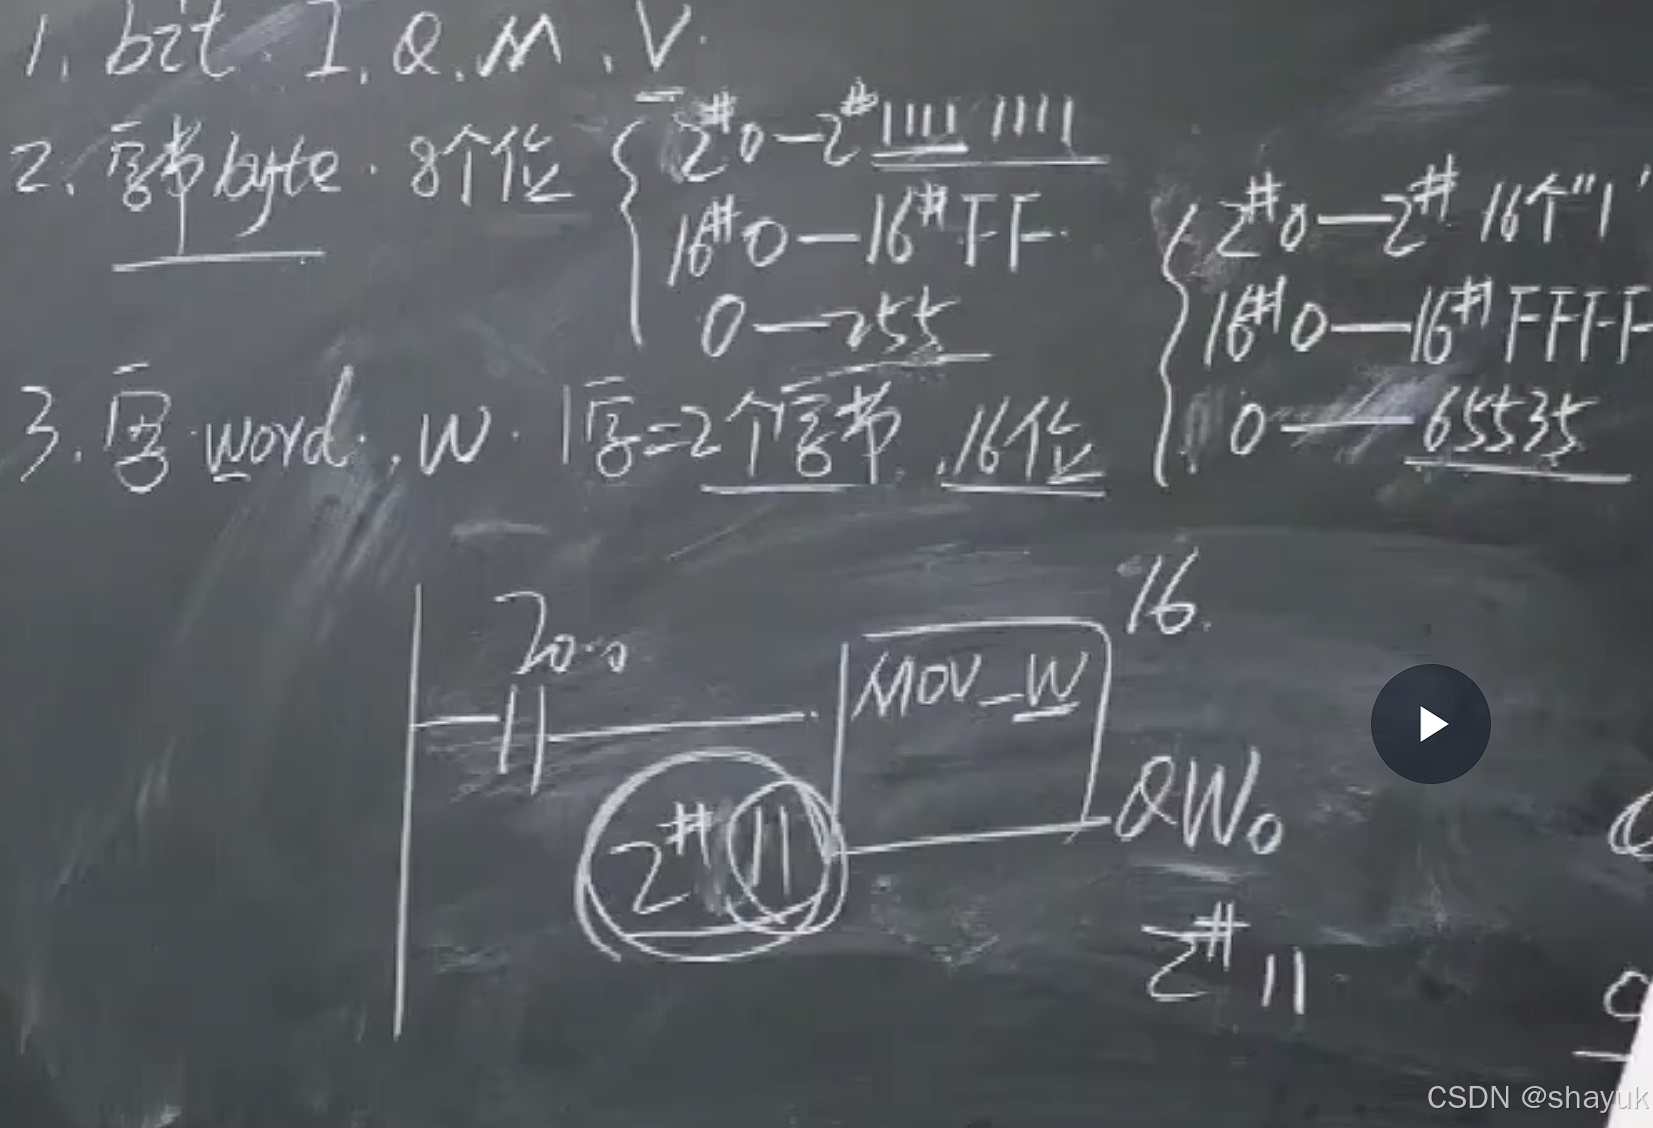 1. bit. I. Q. M. V.
2. 字节 byte. 8个位
2#0—2#1111 1111
16#0—16#FF
0—255
3. 字. word. W. 1字=2个字节. 16位
2#0—2# 16个"1"
16#0—16#FFFF
0—65535
I0.0
MOV_W
16.
2#11
QW0
2#11
CSDN @shayuk